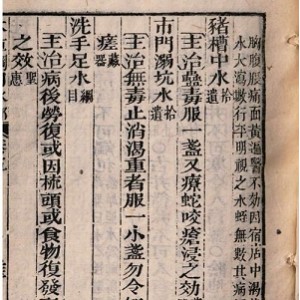 胸腹脹痛面黃遍醫不効因宿店中渴
水大瀉數行平明視之水蛭無數其病
猪槽中水 拾遺
主治蠱毒服一盞又療蛇咬瘡浸之効
市門溺坑水 拾遺
主治無毒止消渴重者服一小盞勿令
瘥 藏器
洗手足水 綱目
主治病後勞復或因梳頭或食物復發
之效 聖惠